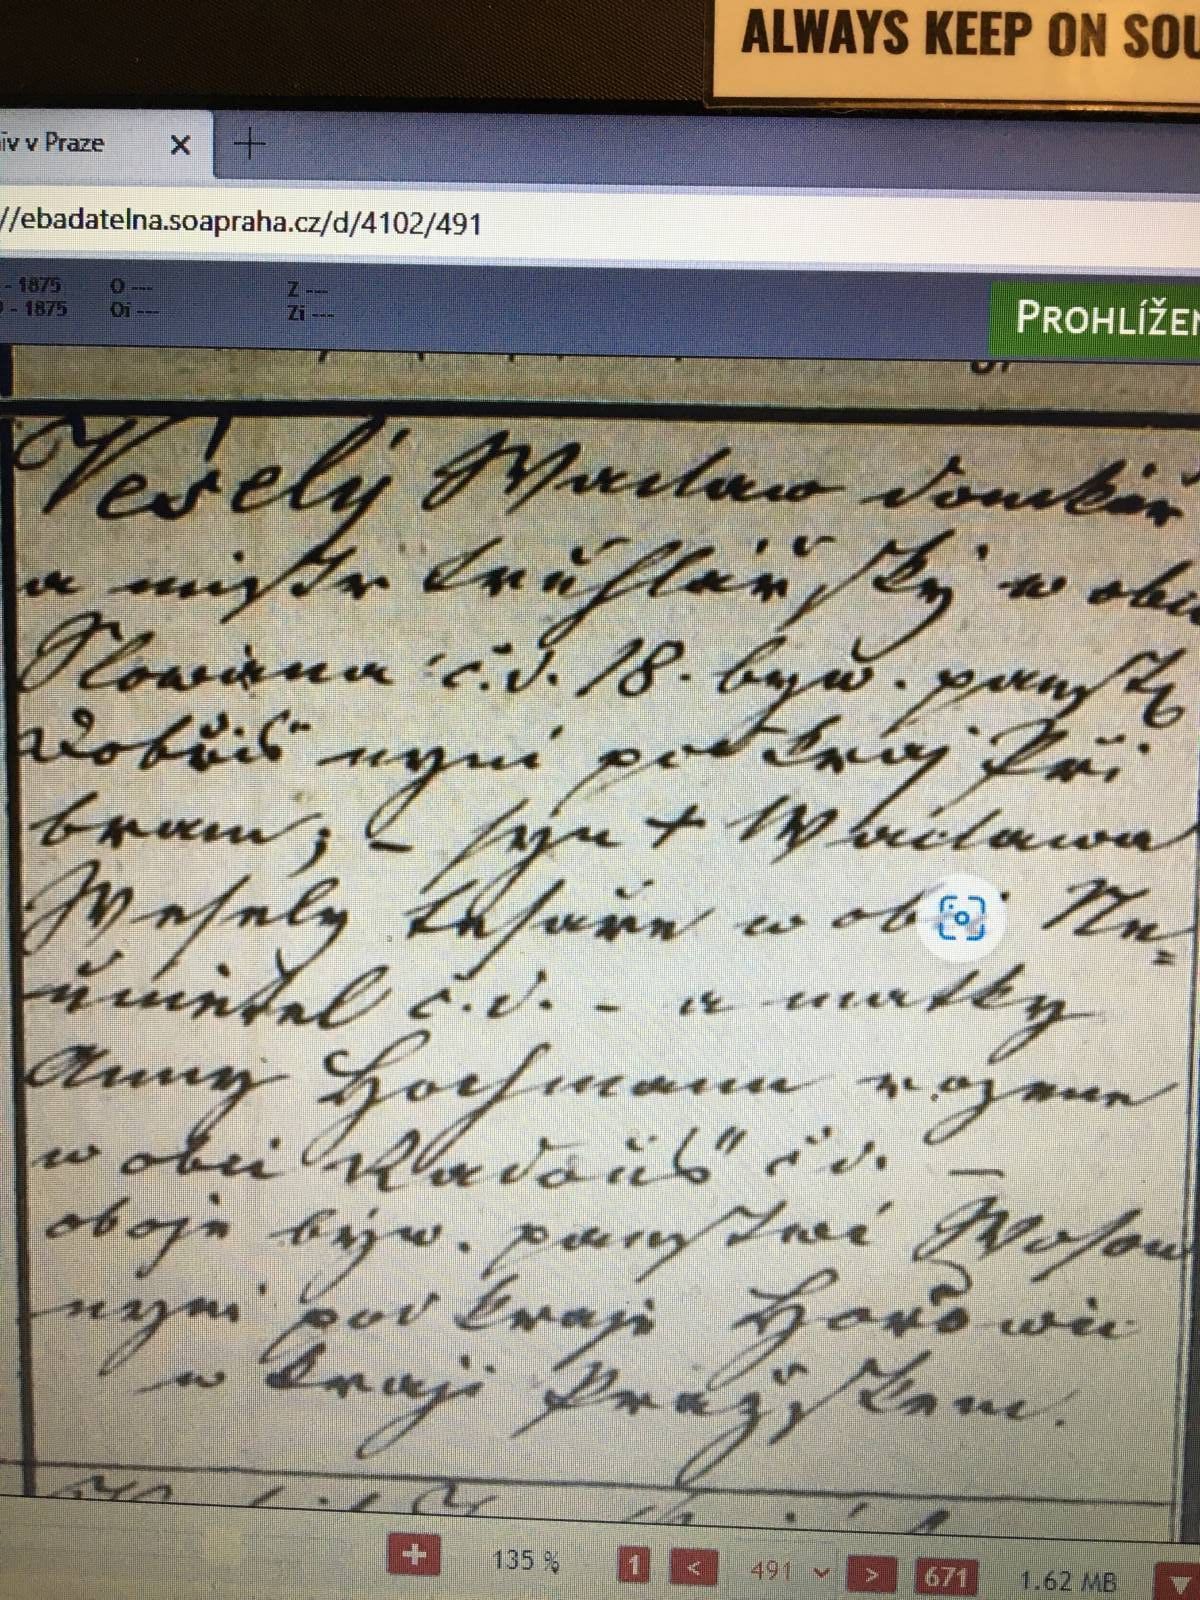 ALWAYS KEEP ON SOU
iv v Praze
//ebadatelna.soapraha.cz/d/4102/491
- 1875 O --- Z ---
- 1875 Oi --- Zi ---
PROHLÍŽEN
Veselý Waclaw domkář
a mistr truhlářský w obci
Slowana č.d. 18. byw. panst.
Dobříš nyní pod kraj Pří
bram; – syn + Waclawa
Wesely tesaře w obci Ne=
uměřel č.d. – a matky
Anny Hochmann rozene
w obci Radouš č d. –
oboje býw. panstwí Wosow
nyni pod kraji Hořowic
w kraji Pražskem.
135 % 1 < 491 > 671 1.62 MB